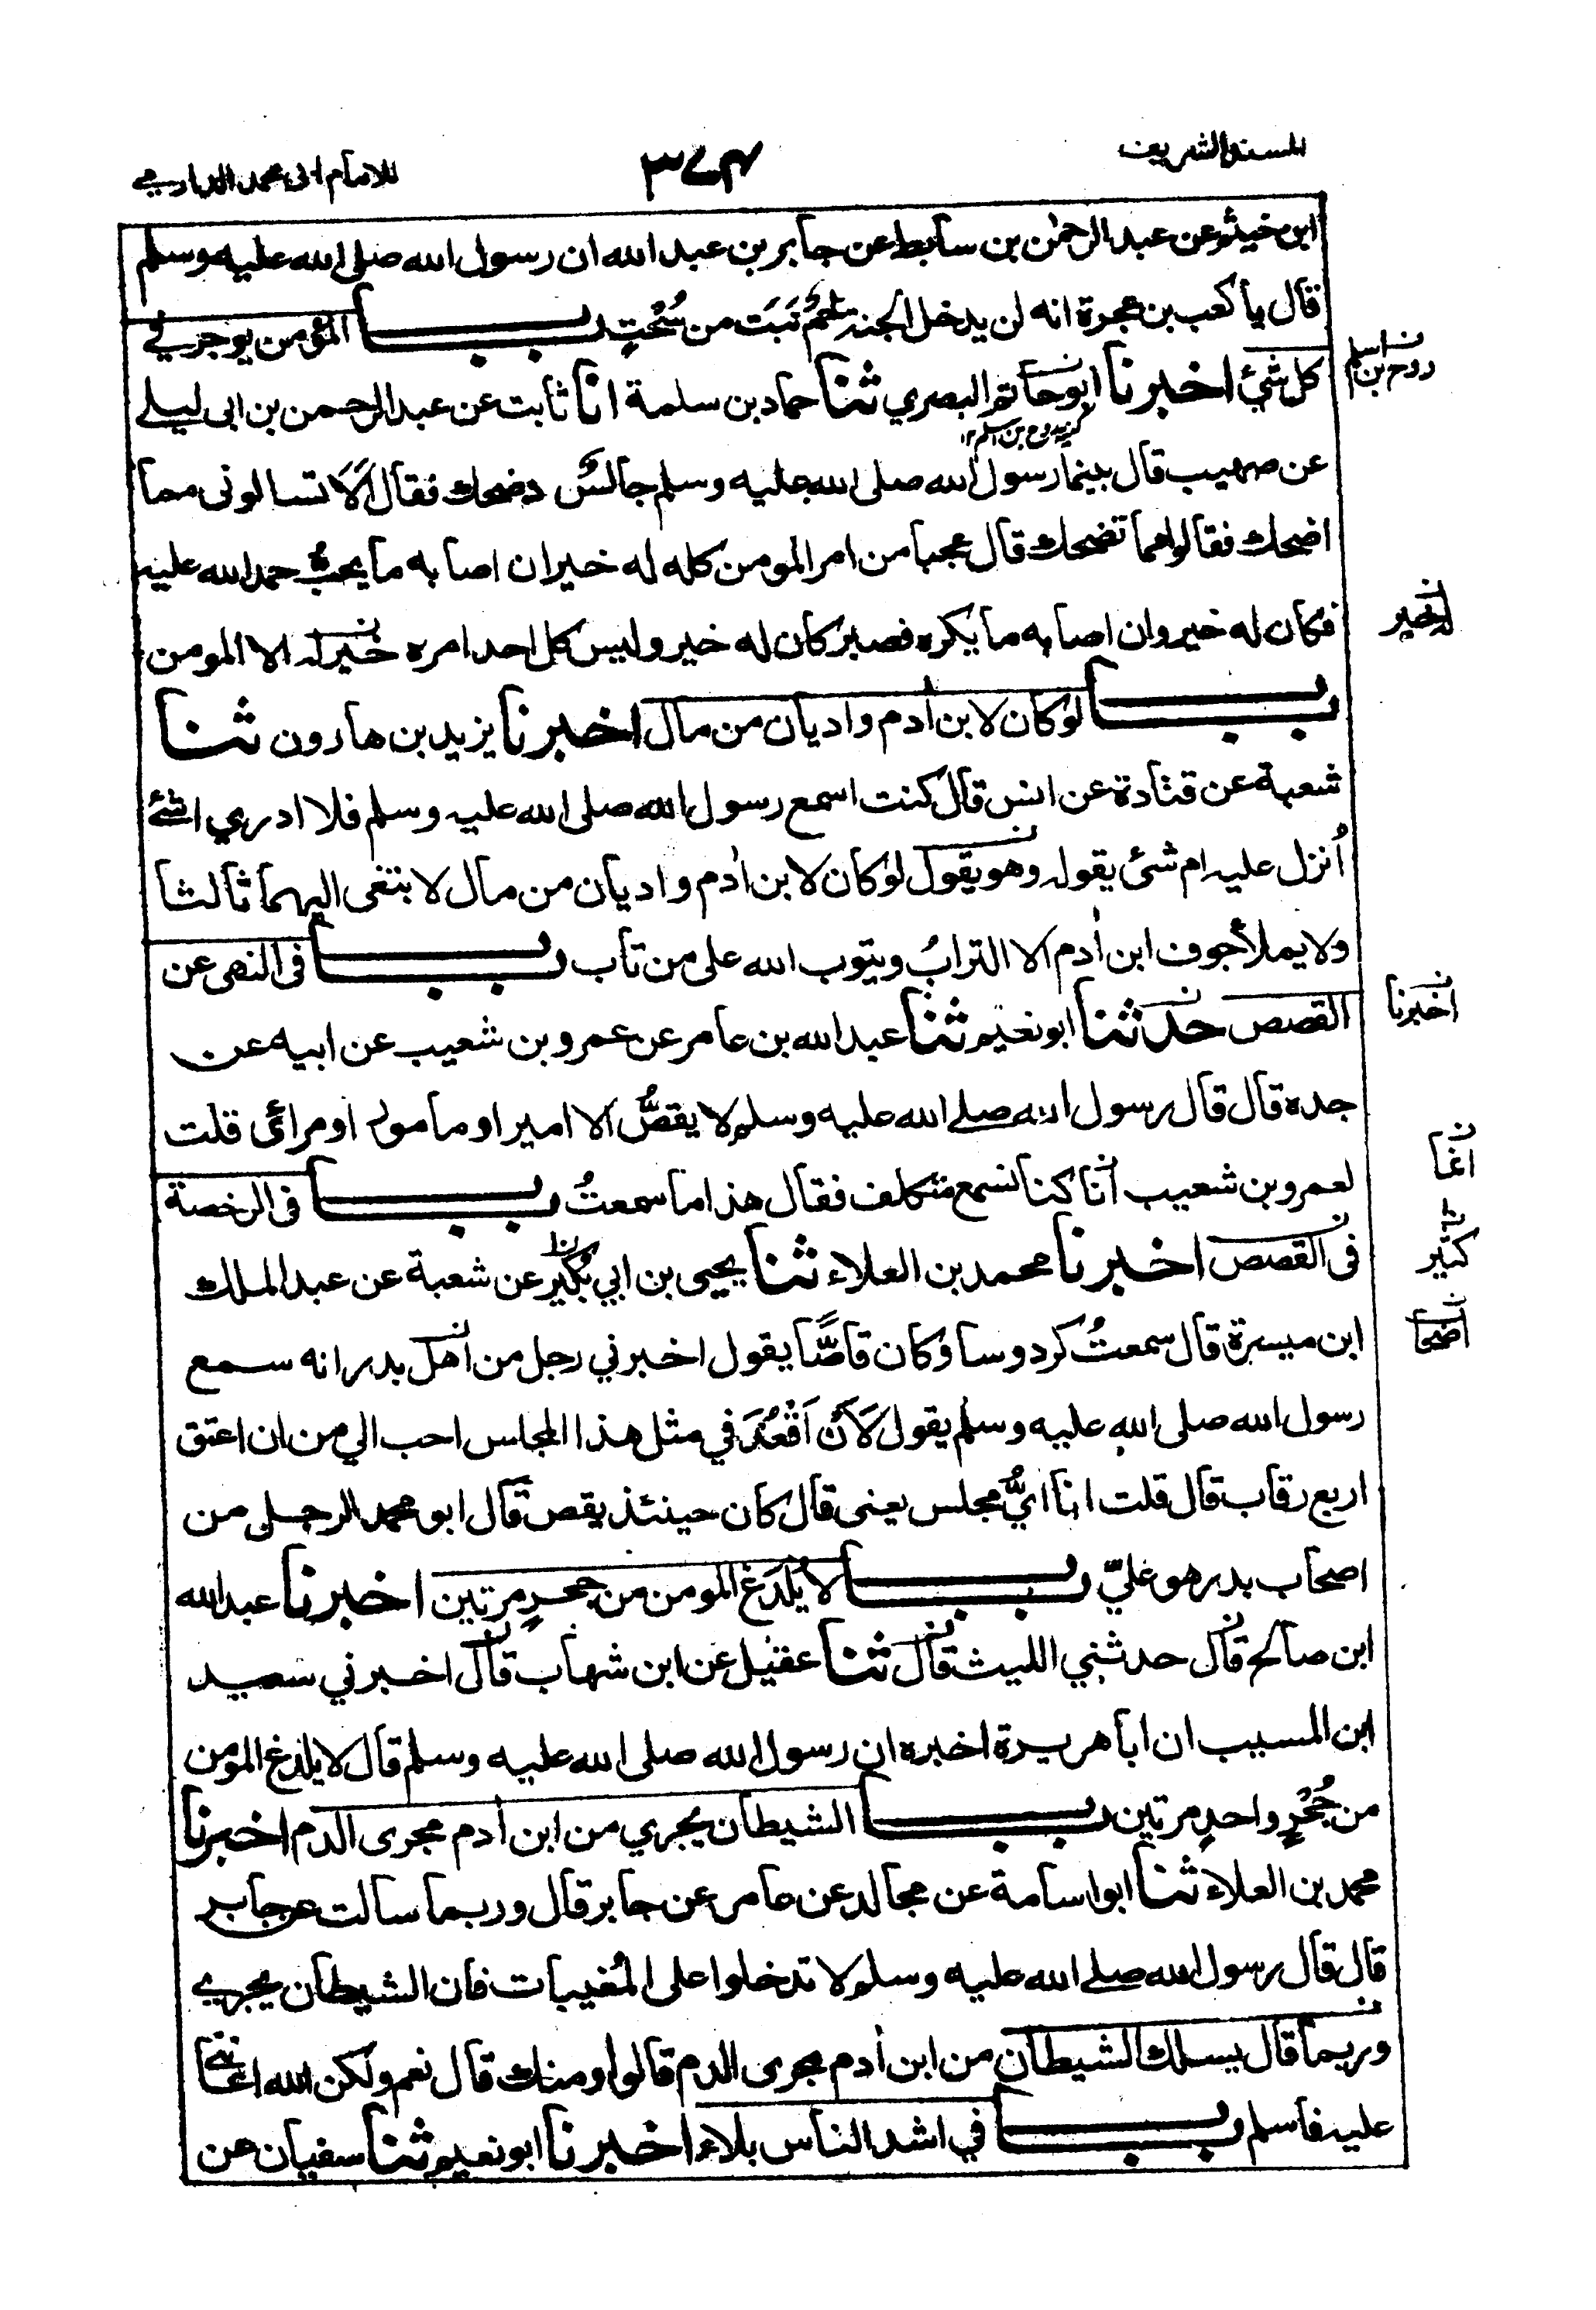 المسند الشريف
٣٧٤
للامام ابى محمد الدارمي
ابن خيثم عن عبد الرحمٰن بن سابط عن جابر بن عبد الله ان رسول الله صلى الله عليه وسلم
قال يا كعب بن عجرة انه لن يدخل الجنة لحم نبت من سُحْتٍ باب المؤمن يوجر في
كل شئ اخبرنا ابو حاتم البصري ثنا حماد بن سلمة انا ثابت عن عبد الرحمن بن ابى ليلے
روح بن اسلم
عن صهيب قال بينما رسول الله صلى الله عليه وسلم جالسٌ دضحك فقال اَلَا تسالونى مما
اضحك فقالوا مما تضحك قال عجبا من امر المومن كله له خير ان اصابه ما يحبُّ حمد الله عليه
فكان له خير وان اصابه ما يكره فصبر كان له خير وليس كل احد امره خير له الا المومن
باب لو كان لابن اٰدم واديان من مال اخبرنا يزيد بن هارون ثنا
شعبة عن قتادة عن انس قال كنت اسمع رسول الله صلى الله عليه وسلم فلا ادري اشئ
اُنزل عليه ام شئ يقوله وهو يقول لو كان لابن اٰدم واديان من مال لابتغى اليهما ثالثا
ولا يملأ جوف ابن اٰدم الا الترابُ ويتوب الله على من تاب باب فى النهى عن
القصص حدثنا ابو نعيم ثنا عبد الله بن عامر عن عمرو بن شعيب عن ابيه عن
اخبرنا
جده قال قال رسول الله صلے الله عليه وسلم لا يقصُّ الا امير او مامور او مرائى قلت
لعمرو بن شعيب انا كنا نسمع متكلف فقال هذا ما سمعتُ باب فى الرخصة
انما
فى القصص اخبرنا محمد بن العلاء ثنا يحيى بن ابي بُكَير عن شعبة عن عبد الملك
كثير
ابن ميسرة قال سمعتُ كردوسا وكان قاصًّا يقول اخبرني رجل من اهل بدر انه سمع
اصحاب
رسول الله صلى الله عليه وسلم يقول لَاَنْ اَقْعُدَ في مثل هذا المجلس احب الي من ان اعتق
اربع رقاب قال قلت انا ايُّ مجلس يعنى قال كان حينئذ يقص قال ابو محمد الرجل من
اصحاب بدر هو عليّ باب لا يُلدَغ المومن من جحرٍ مرتين اخبرنا عبد الله
ابن صالح قال حدثني الليث قال ثنا عقيل عن ابن شهاب قال اخبرني سعيد
ابن المسيب ان ابا هريرة اخبره ان رسول الله صلى الله عليه وسلم قال لا يلدغ المومن
من جُحْرٍ واحدٍ مرتين باب الشيطان يجري من ابن اٰدم مجرى الدم اخبرنا
محمد بن العلاء ثنا ابو اسامة عن مجالد عن عامر عن جابر قال وربما سالت عن جابر
قال قال رسول الله صلے الله عليه وسلم لا تدخلوا على المُغيبات فان الشيطان يجرے
وربما قال يسلك الشيطان من ابن اٰدم مجرى الدم قالوا ومنك قال نعم ولكن الله اعاننى
عليه فاسلم باب في اشد الناس بلاء اخبرنا ابو نعيم ثنا سفيان عن